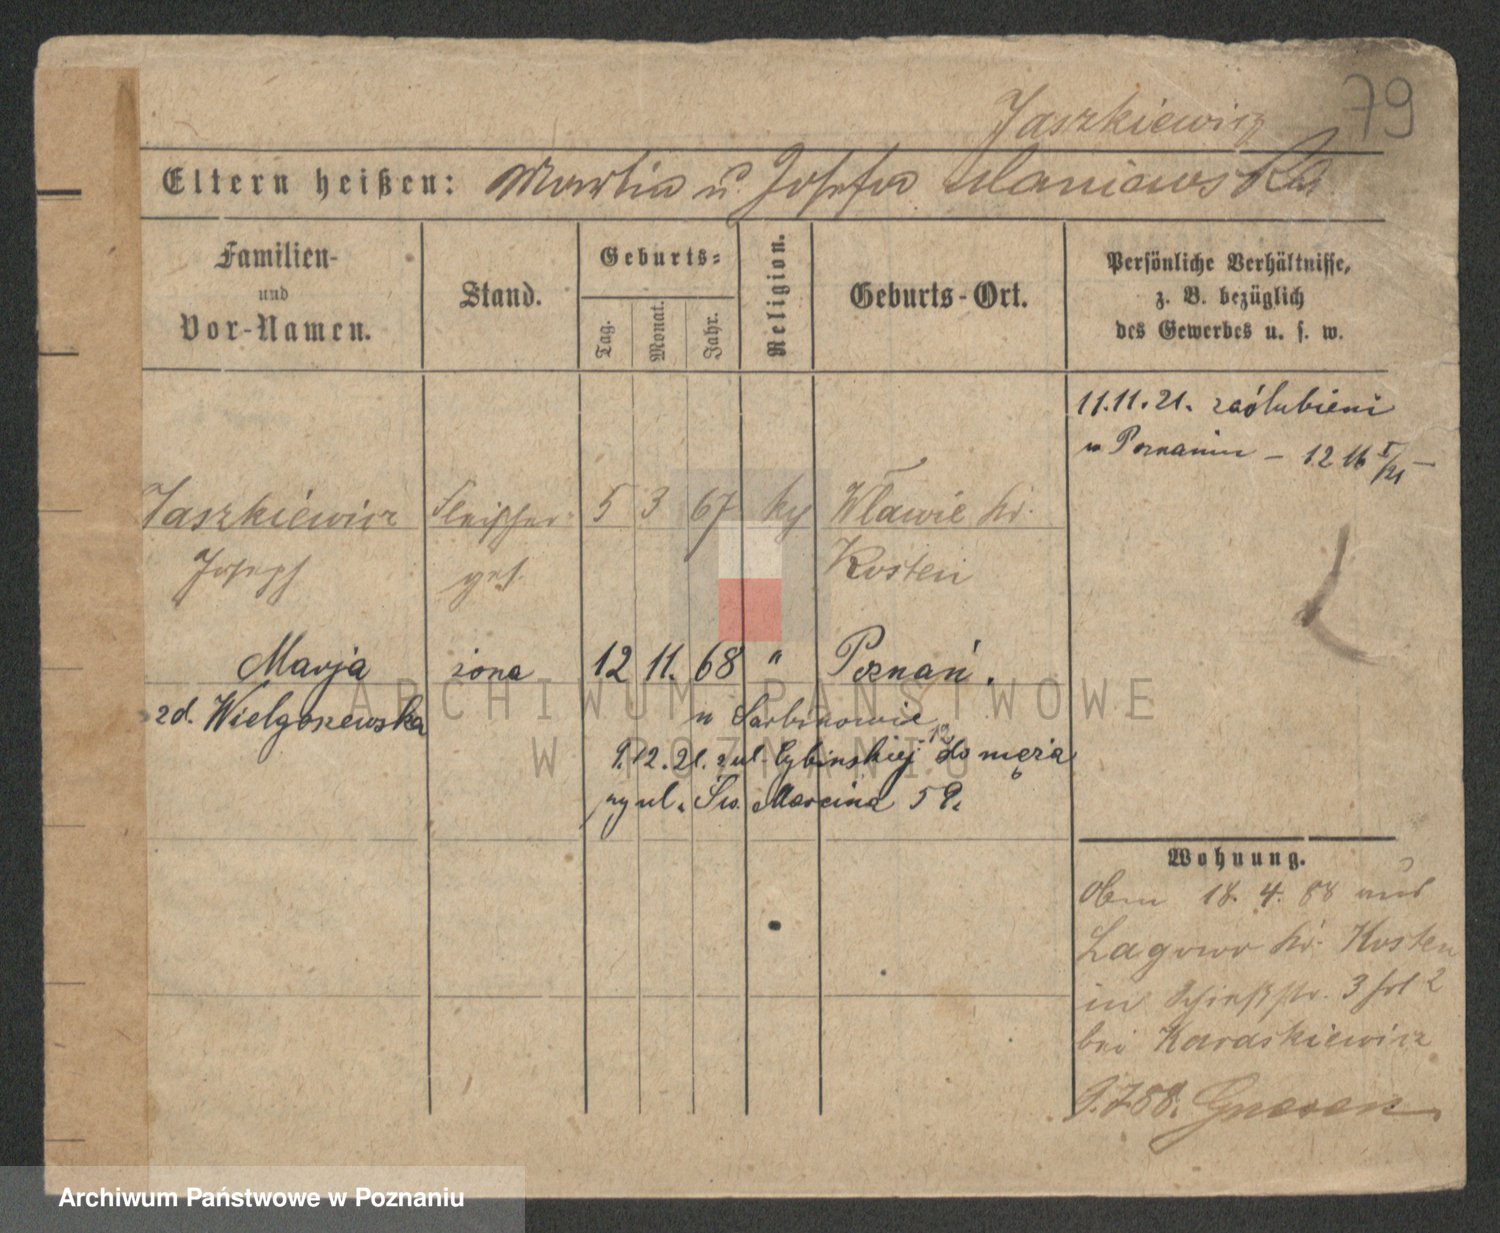 79
Jaszkiewicz
Eltern heißen: Martin u. Josefa Maniewska
Familien-
und
Vor-Namen.
Stand.
Geburts-
Tag.
Monat.
Jahr.
Religion.
Geburts-Ort.
Persönliche Verhältnisse,
z. B. bezüglich
des Gewerbes u. s. w.
11.11.21. zaślubieni
w Poznaniu – 12 16 I/21 –
Jaszkiewicz Fleischer 5 3 67 Wławie Kr.
Joseph ges. Kosten
Marja żona 12 11. 68 " Poznań.
zd. Wielgoszewska w Sarbinowie
9.12.21. z ul. Cybińskiej 12 do męża
ul. Św. Marcina 59.
Wohnung.
18. 4. 88 aus
Lagowo Kr. Kosten
in Schießstr. 3 2
bei Karaskiewicz
9.7 88. Gnesen
ARCHIWUM PAŃSTWOWE
W POZNANIU
Archiwum Państwowe w Poznaniu